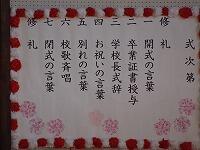 式次第
修礼
一 開式の言葉
二 卒業証書授与
三 学校長式辞
四 お祝いの言葉
五 別れの言葉
六 校歌斉唱
七 閉式の言葉
修礼